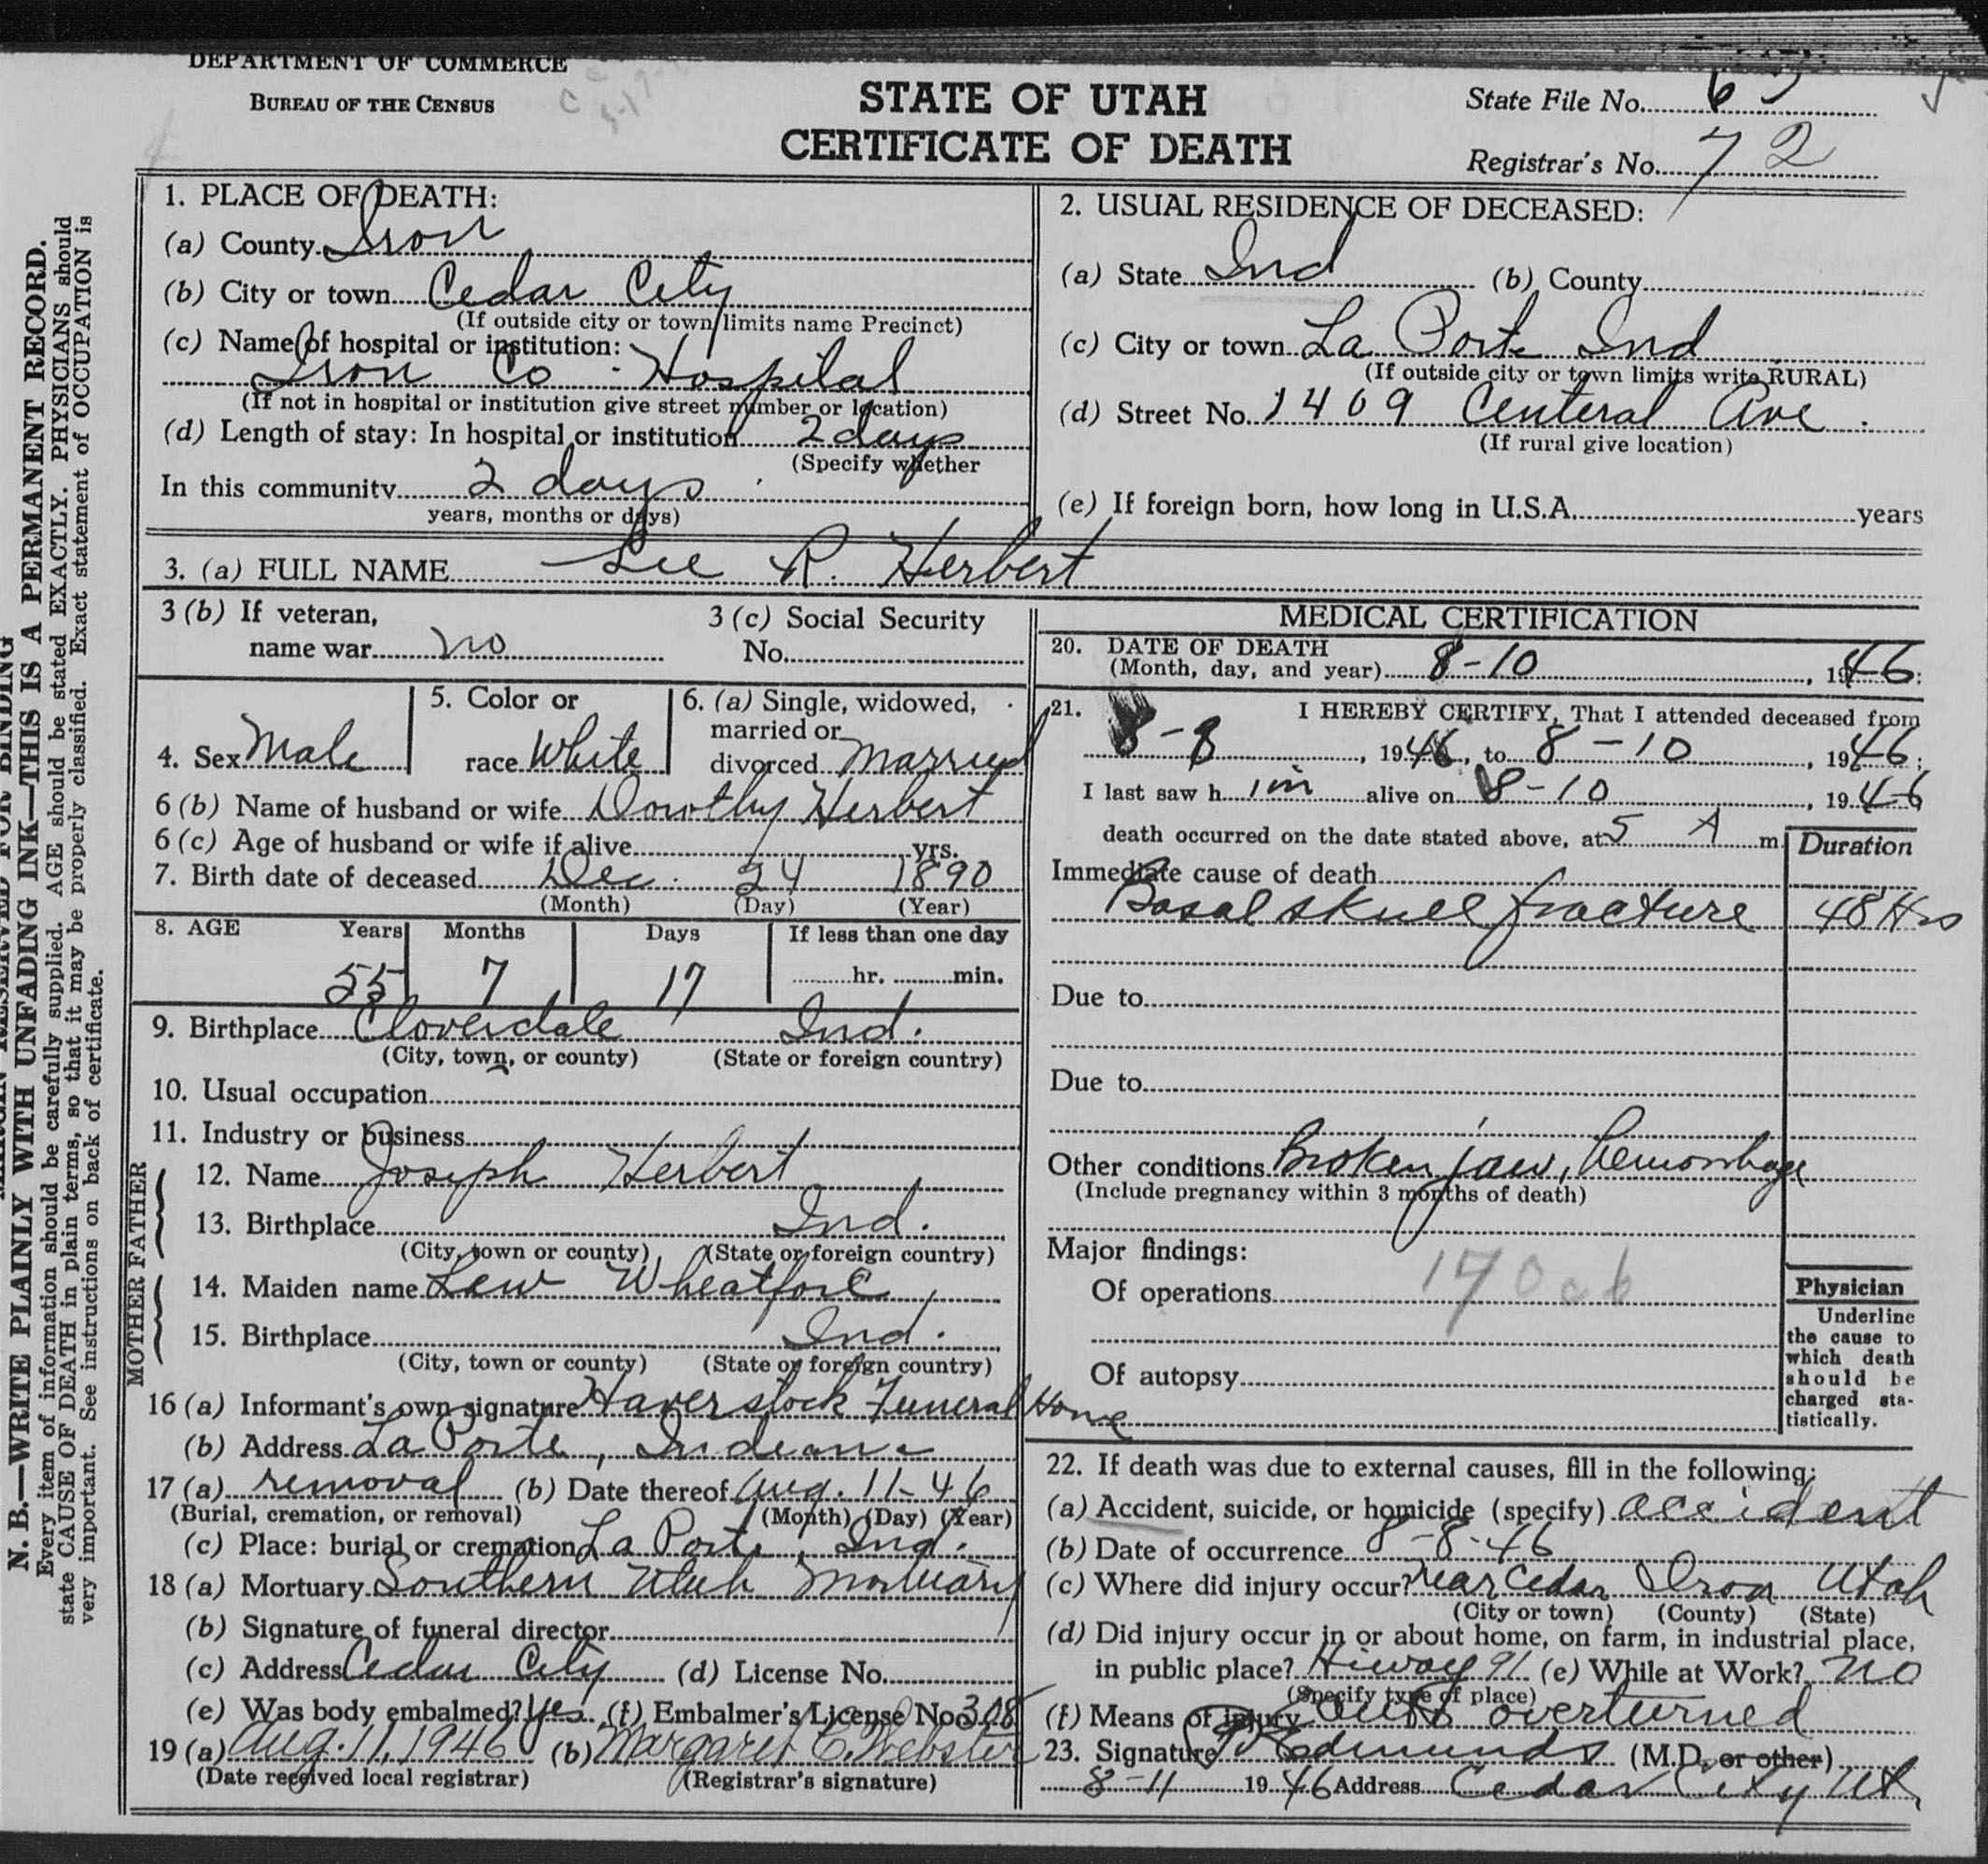 DEPARTMENT OF COMMERCE
BUREAU OF THE CENSUS
STATE OF UTAH
CERTIFICATE OF DEATH
State File No.
Registrar's No. 72
N. B.—WRITE PLAINLY WITH UNFADING INK—THIS IS A PERMANENT RECORD.
Every item of information should be carefully supplied. AGE should be stated EXACTLY. PHYSICIANS should
state CAUSE OF DEATH in plain terms, so that it may be properly classified. Exact statement of OCCUPATION is
very important. See instructions on back of certificate.
1. PLACE OF DEATH:
(a) County Iron
(b) City or town Cedar City
(If outside city or town limits name Precinct)
(c) Name of hospital or institution:
Iron Co Hospital
(If not in hospital or institution give street number or location)
(d) Length of stay: In hospital or institution 2 days
(Specify whether
In this community 2 days
years, months or days)
2. USUAL RESIDENCE OF DECEASED:
(a) State Ind (b) County
(c) City or town La Porte Ind
(If outside city or town limits write RURAL)
(d) Street No. 1409 Centeral Ave.
(If rural give location)
(e) If foreign born, how long in U.S.A. years
3. (a) FULL NAME Lee R. Herbert
3 (b) If veteran,
name war no
3 (c) Social Security
No.
4. Sex Male
5. Color or
race White
6. (a) Single, widowed,
married or
divorced Married
6 (b) Name of husband or wife Dorothy Herbert
6 (c) Age of husband or wife if alive yrs.
7. Birth date of deceased Dec. 24 1890
(Month) (Day) (Year)
8. AGE Years Months Days If less than one day
55 7 17 hr. min.
9. Birthplace Cloverdale Ind.
(City, town, or county) (State or foreign country)
10. Usual occupation
11. Industry or business
FATHER
12. Name Joseph Herbert
13. Birthplace Ind.
(City, town or county) (State or foreign country)
MOTHER
14. Maiden name Lew
15. Birthplace Ind.
(City, town or county) (State or foreign country)
16 (a) Informant's own signature Haverstock Funeral Home
(b) Address La Porte, Indiana
17 (a) removal (b) Date thereof Aug. 11-46
(Burial, cremation, or removal) (Month) (Day) (Year)
(c) Place: burial or cremation La Porte, Ind.
18 (a) Mortuary Southern Utah Mortuary
(b) Signature of funeral director
(c) Address Cedar City (d) License No.
(e) Was body embalmed? Yes (f) Embalmer's License No. 308
19 (a) Aug. 11, 1946 (b) Margaret C. Webster
(Date received local registrar) (Registrar's signature)
MEDICAL CERTIFICATION
20. DATE OF DEATH
(Month, day, and year) 8-10, 1946;
21. I HEREBY CERTIFY, That I attended deceased from
8-8, 1946, to 8-10, 1946;
I last saw h im alive on 8-10, 1946
death occurred on the date stated above, at 5 A m.
Duration
Immediate cause of death
Basal skull fracture 48 Hrs
Due to
Due to
Other conditions Broken jaw, hemorrhage
(Include pregnancy within 3 months of death)
Major findings:
Of operations
Of autopsy
Physician
Underline
the cause to
which death
should be
charged sta-
tistically.
22. If death was due to external causes, fill in the following:
(a) Accident, suicide, or homicide (specify) accident
(b) Date of occurrence 8-8-46
(c) Where did injury occur? near Cedar Iron Utah
(City or town) (County) (State)
(d) Did injury occur in or about home, on farm, in industrial place,
in public place? Hiway 91 (e) While at Work? no
(Specify type of place)
(f) Means of injury Auto overturned
23. Signature Edmunds (M.D. or other)
8-11 1946 Address Cedar City Ut